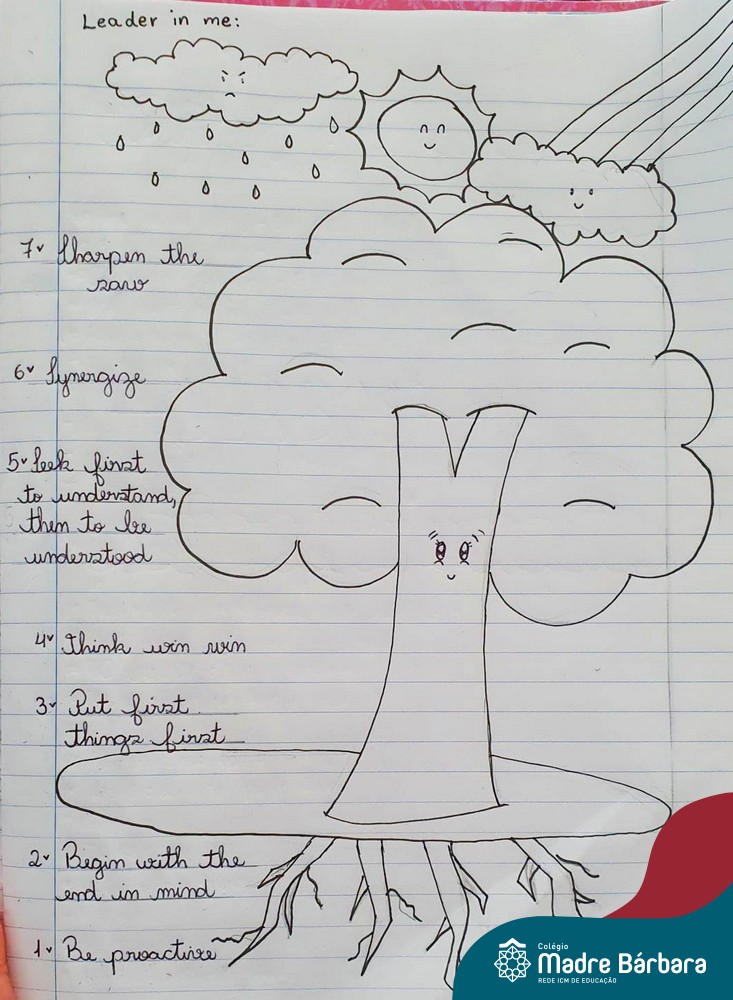 Leader in me:
7. Sharpen the
saw
6. Synergize
5. Seek first
to understand,
then to be
understood
4. Think win win
3. Put first
things first
2. Begin with the
end in mind
1. Be proactive
Colégio
Madre Bárbara
REDE ICM DE EDUCAÇÃO